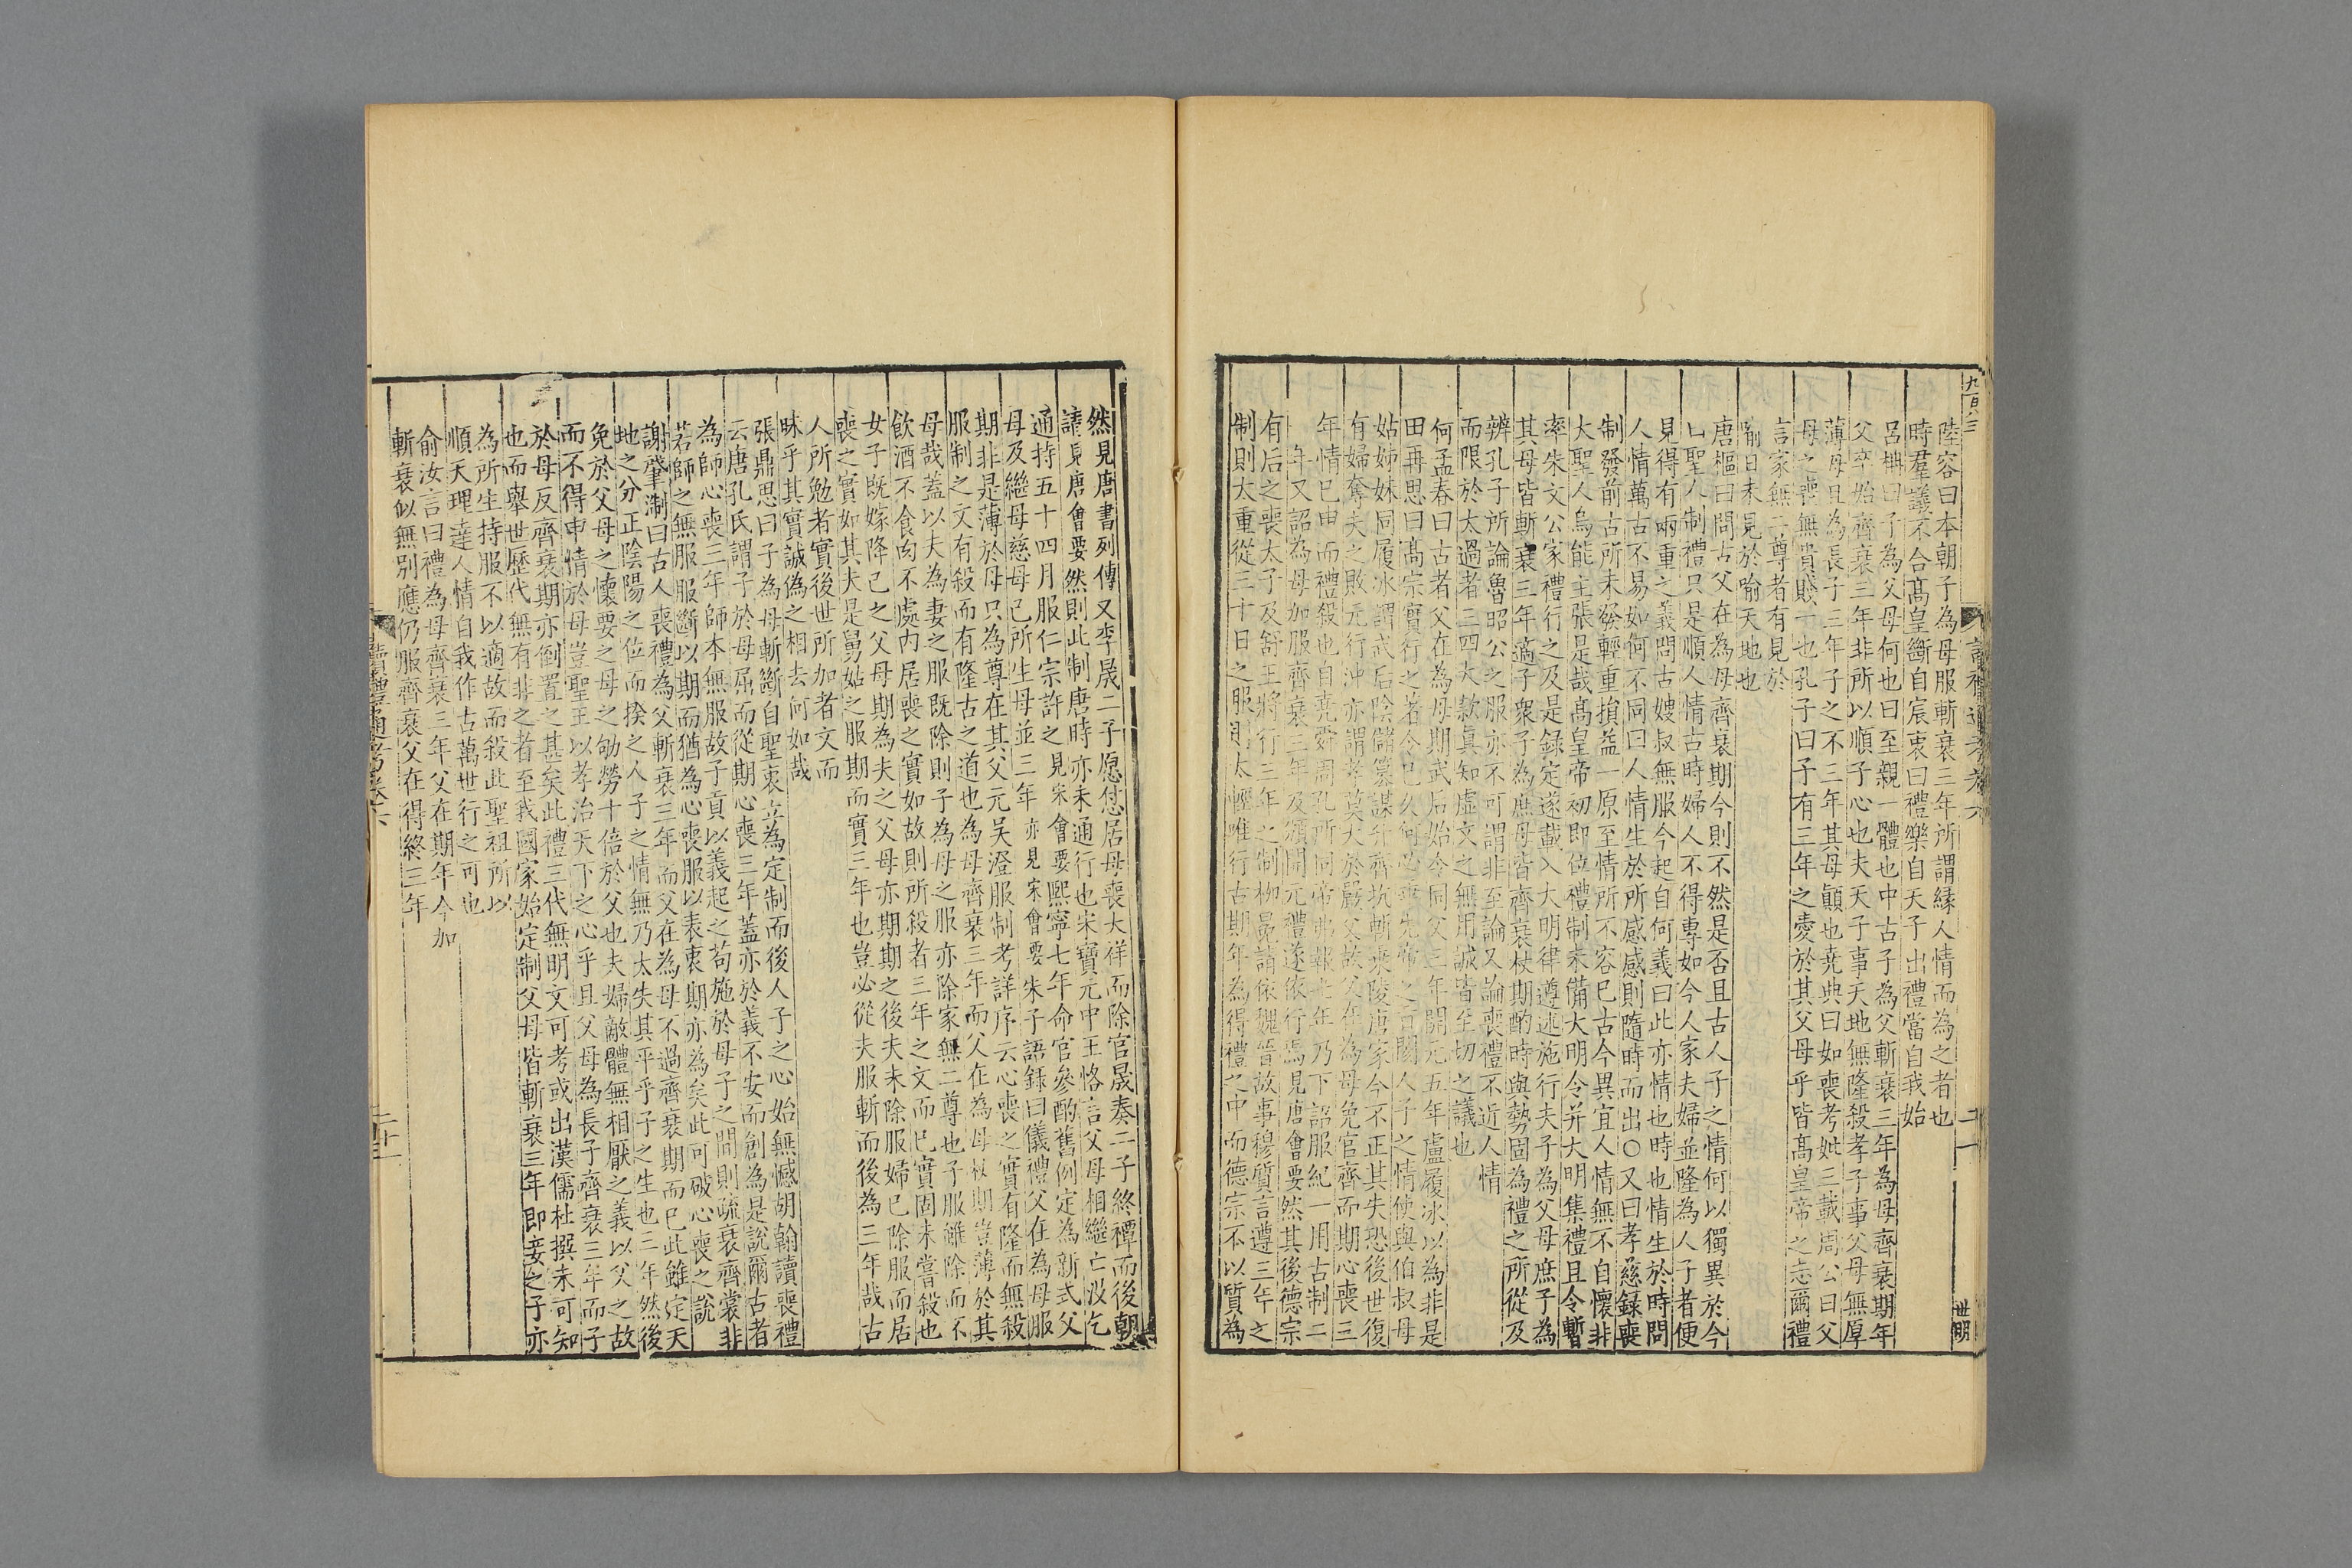 陸容曰本朝子為母服斬衰三年所謂緣人情而為之者也
時羣議不合髙皇斷自宸衷曰禮樂自天子出禮當自我始
呂柟曰子為父母何也曰至親一體也中古子為父斬衰三年為母齊衰期年
父卒始齊衰三年非所以順子心也夫天子事天地無隆殺孝子事父母無厚
薄母且為長子三年子之不三年其母顛也堯典曰如喪考妣三載周公曰父
母之喪無貴賤一也孔子曰子有三年之愛於其父母乎皆髙皇帝之志爾禮
言家無二尊者有見於
喻曰未見於喻天地也
唐樞曰問古父在為母齊衰期今則不然是否且古人子之情何以獨異於今
曰聖人制禮只是順人情古時婦人不得專如今人家夫婦並隆為人子者便
見得有兩重之義問古嫂叔無服今起自何義曰此亦情也時也情生於時問
人情萬古不易如何不同曰人情生於所感感則隨時而出○又曰孝慈錄喪
制發前古所未發輕重損益一原至情所不容已古今異宜人情無不自懷非
大聖人烏能主張是哉髙皇帝初即位禮制未備大明令并大明集禮且令暫
率朱文公家禮行之及是録定遂載入大明律遵述施行夫子為父母庶子為
其母皆斬衰三年適子衆子為庶母皆齊衰杖期酌時與勢固為禮之所從及
辨孔子所論魯昭公之服亦不可謂非至論又論喪禮不近人情
而限於太過者三四大款真知虛文之無用誠皆至切之議也
何孟春曰古者父在為母期武后始令同父三年開元五年盧履冰以為非是
田再思曰髙宗實行之者今已久何必乖先帝之旨閡人子之情使與伯叔母
姑姊妹同履冰謂武后陰儲篡謀升齊抗斬乘陵唐家今不正其失恐後世復
有婦奪夫之敗元行沖亦謂孝莫大於嚴父故父在為母免官齊而期心喪三
年情已申而禮殺也自堯舜周孔所同帝弗報七年乃下詔服紀一用古制二
年又詔為母加服齊衰三年及頒開元禮遂依行焉見唐會要然其後德宗
有后之喪太子及舒王將行三年之制柳冕請依魏晉故事穆質言遵三年之
制則太重從三十日之服則太輕唯行古期年為得禮之中而德宗不以質為
然見唐書列傳又李晟二子愿愬居母喪大祥而除官晟奏二子終禫而後朝
請見唐會要然則此制唐時亦未通行也宋寶元中王恪言父母相繼亡歿乞
通持五十四月服仁宗許之見宋會要熙寧七年命官參酌舊例定為新式父
母及繼母慈母已所生母並三年亦見宋會要朱子語錄曰儀禮父在為母服
期非是薄於母只為尊在其父元吳澄服制考詳序云心喪之實有隆而無殺
服制之文有殺而有隆古之道也為母齊衰三年而父在為母杖期豈薄於其
母哉蓋以夫為妻之服既除則子為母之服亦除家無二尊也子服雖除而不
飲酒不食肉不處內居喪之實如故則所殺者三年之文而已實固未嘗殺也
女子既嫁降已之父母期為夫之父母亦期期之後夫未除服婦已除服而居
喪之實如其夫是舅姑之服期而實三年也豈必從夫服斬而後為三年哉古
人所勉者實後世所加者文而
昧乎其實誠偽之相去何如哉
張鼎思曰子為母斬斷自聖衷立為定制而後人子之心始無憾胡翰讀喪禮
云唐孔氏謂子於母屈而從期心喪三年蓋亦於義不安而創為是說爾古者
為師心喪三年師本無服故子貢以義起之苟施於母子之間則疏衰齊裳非
若師之無服服斷以期而猶為心喪服以表衷期亦為矣此可破心喪之說
謝肇淛曰古人喪禮為父斬衰三年而父在為母不過齊衰期而已此雖定天
地之分正陰陽之位而揆之人子之情無乃太失其平乎子之生也三年然後
免於父母之懷要之母之劬勞十倍於父也夫婦敵體無相厭之義以父之故
而不得申情於母豈聖王以孝治天下之心乎且父母為長子齊衰三年而子
於母反齊衰期亦倒置之甚矣此禮三代無明文可考或出漢儒杜撰未可知
也而舉世歷代無有非之者至我國家始定制父母皆斬衰三年即妾之子亦
為所生持服不以適故而殺此聖祖所以
順天理達人情自我作古萬世行之可也
俞汝言曰禮為母齊衰三年父在期年今加
斬衰似無別應仍服齊衰父在得終三年